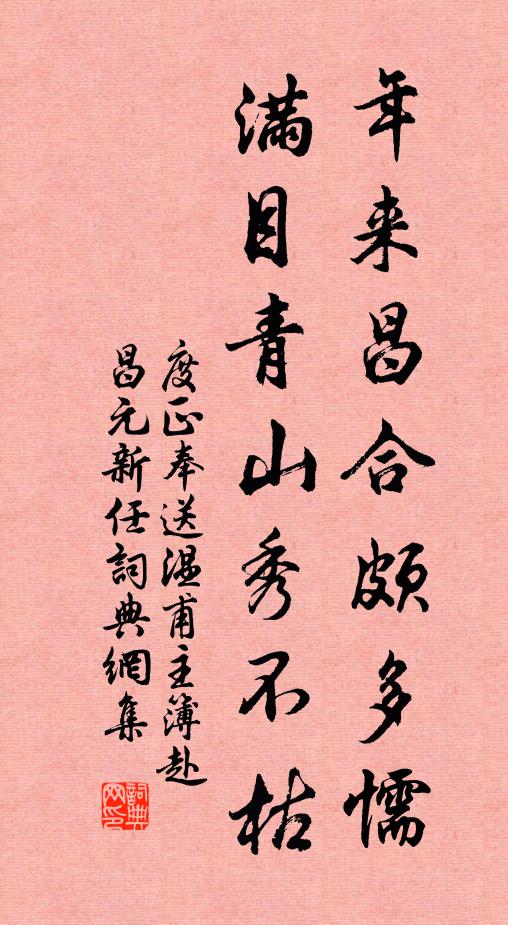 年来昌合頗多懦
滿目青山秀不枯
度正奉送溫甫主簿赴
昌元新任詞典網集
詞典網印